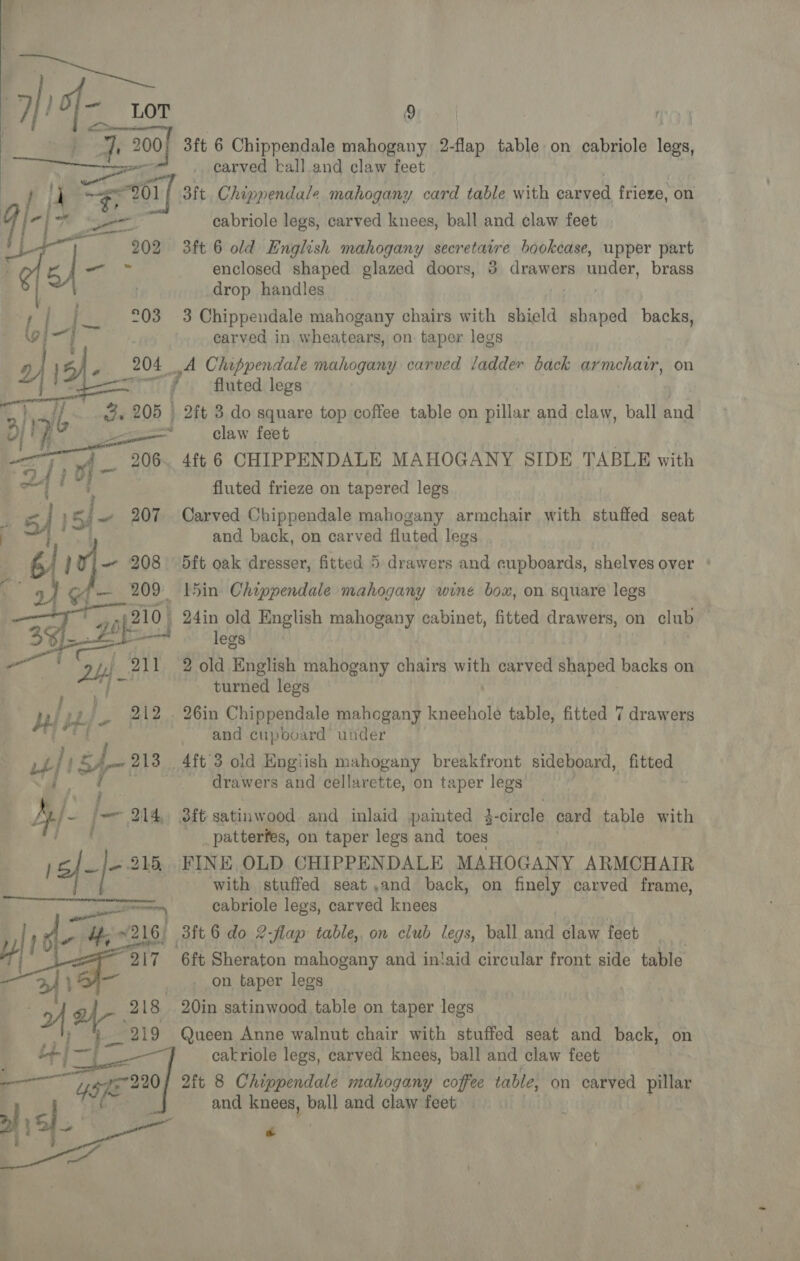 7/15/- LOT 9
7, 200 3ft 6 Chippendale mahogany 2-flap table on cabriole legs,
carved ball and claw feet
201 3ft Chippendale mahogany card table with carved frieze, on
cabriole legs, carved knees, ball and claw feet
202 3ft 6 old English mahogany secretaire bookcase, upper part
enclosed shaped glazed doors, 3 drawers under, brass
drop handles
203 3 Chippendale mahogany chairs with shield shaped backs,
carved in wheatears, on taper legs
2/15/- 204 A Chippendale mahogany carved ladder back armchair, on
fluted legs
3, 205 2ft 3 do square top coffee table on pillar and claw, ball and
claw feet
206 4ft 6 CHIPPENDALE MAHOGANY SIDE TABLE with
fluted frieze on tapered legs
5/15/- 207 Carved Chippendale mahogany armchair with stuffed seat
and back, on carved fluted legs
6/10/- 208 5ft oak dresser, fitted 5 drawers and cupboards, shelves over
209 15in Chippendale mahogany wine box, on square legs
210 24in old English mahogany cabinet, fitted drawers, on club
legs
211 2 old English mahogany chairs with carved shaped backs on
turned legs
212 26in Chippendale mahogany kneehole table, fitted 7 drawers
and cupboard under
213 4ft 3 old English mahogany breakfront sideboard, fitted
drawers and cellarette, on taper legs
214 3ft satinwood and inlaid painted ½-circle card table with
patterfes, on taper legs and toes
15/-/- 215 FINE OLD CHIPPENDALE MAHOGANY ARMCHAIR
with stuffed seat and back, on finely carved frame,
cabriole legs, carved knees
4, 216 3ft 6 do 2-flap table, on club legs, ball and claw feet
217 6ft Sheraton mahogany and inlaid circular front side table
on taper legs
218 20in satinwood table on taper legs
219 Queen Anne walnut chair with stuffed seat and back, on
cabriole legs, carved knees, ball and claw feet
220 2ft 8 Chippendale mahogany coffee table, on carved pillar
and knees, ball and claw feet